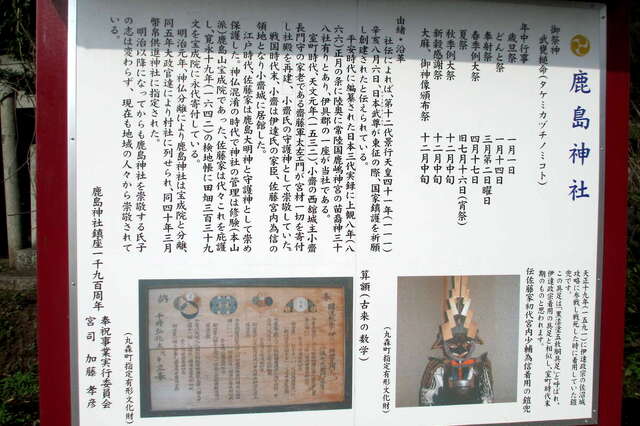 鹿島神社
御祭神
武甕槌命(タケミカヅチノミコト)
年中行事
歳旦祭 一月一日
どんと祭 一月十四日
奉射祭 三月第二日曜日
春季例大祭 四月十七日
夏祭 旧七月十六日(宵祭)
秋季例大祭 十月中旬
新穀感謝祭 十二月中旬
大麻、御神像頒布祭 十二月中旬
由緒・沿革
社伝によれば、第十二代景行天皇四十一年(一一一)
辛亥八月六日、日本武尊が東征の際、国家鎮護を祈願
し創建されたと伝えられている。
平安時代に編纂された日本三代実録に上観八年(八
六六)正月の条に陸奥に常陸国鹿嶋神宮の苗裔神三十
八社有りとあり、伊具郡の一座が当社である。
室町時代、天文元年(一五三二)、小齋の西舘城主小齋
長門守の家老である齋藤軍太左エ門が宮材一切を寄付
し社殿を再建、小齋氏の守護神として崇敬していた。
戦国時代末、小齋は伊達氏の家臣、佐藤宮内為信の
領地となり小齋城に居館した。
江戸時代、佐藤家は鹿島大明神と守護神として崇め
保護した。神仏混淆の時代で神社の管理は修験(本山
派)鹿島山宝成院であった。佐藤家は代々これを庇護
し、寛永十九年(一六四二)の検地帳に田畑三百三十九
文を宝成院に永代寄付している。
明治元年、神仏分離により鹿島神社は宝成院と分離、
同五年大政官達により村社に列せられ、同四十年三月
幣帛供進神社に指定された。
明治以降になってからも鹿島神社を崇敬する氏子
の志は変わらず、現在も地域の人々から崇敬されて
いる。
鹿島神社鎮座一千九百周年
奉祝事業実行委員会
宮司 加藤孝彦
天正十九年(一五九一)に伊達政宗の佐沼城
攻略に参戦し戦死した時に着用していた鎧
兜です。
この具足は、「黒漆塗五枚胴具足」と呼ばれ、
伊達政宗着用の具足と相似し、室町時代末
期のものと思われます。
伝佐藤家初代宮内少輔為信着用の鎧兜
(丸森町指定有形文化財)
算額(古来の数学)
(丸森町指定有形文化財)